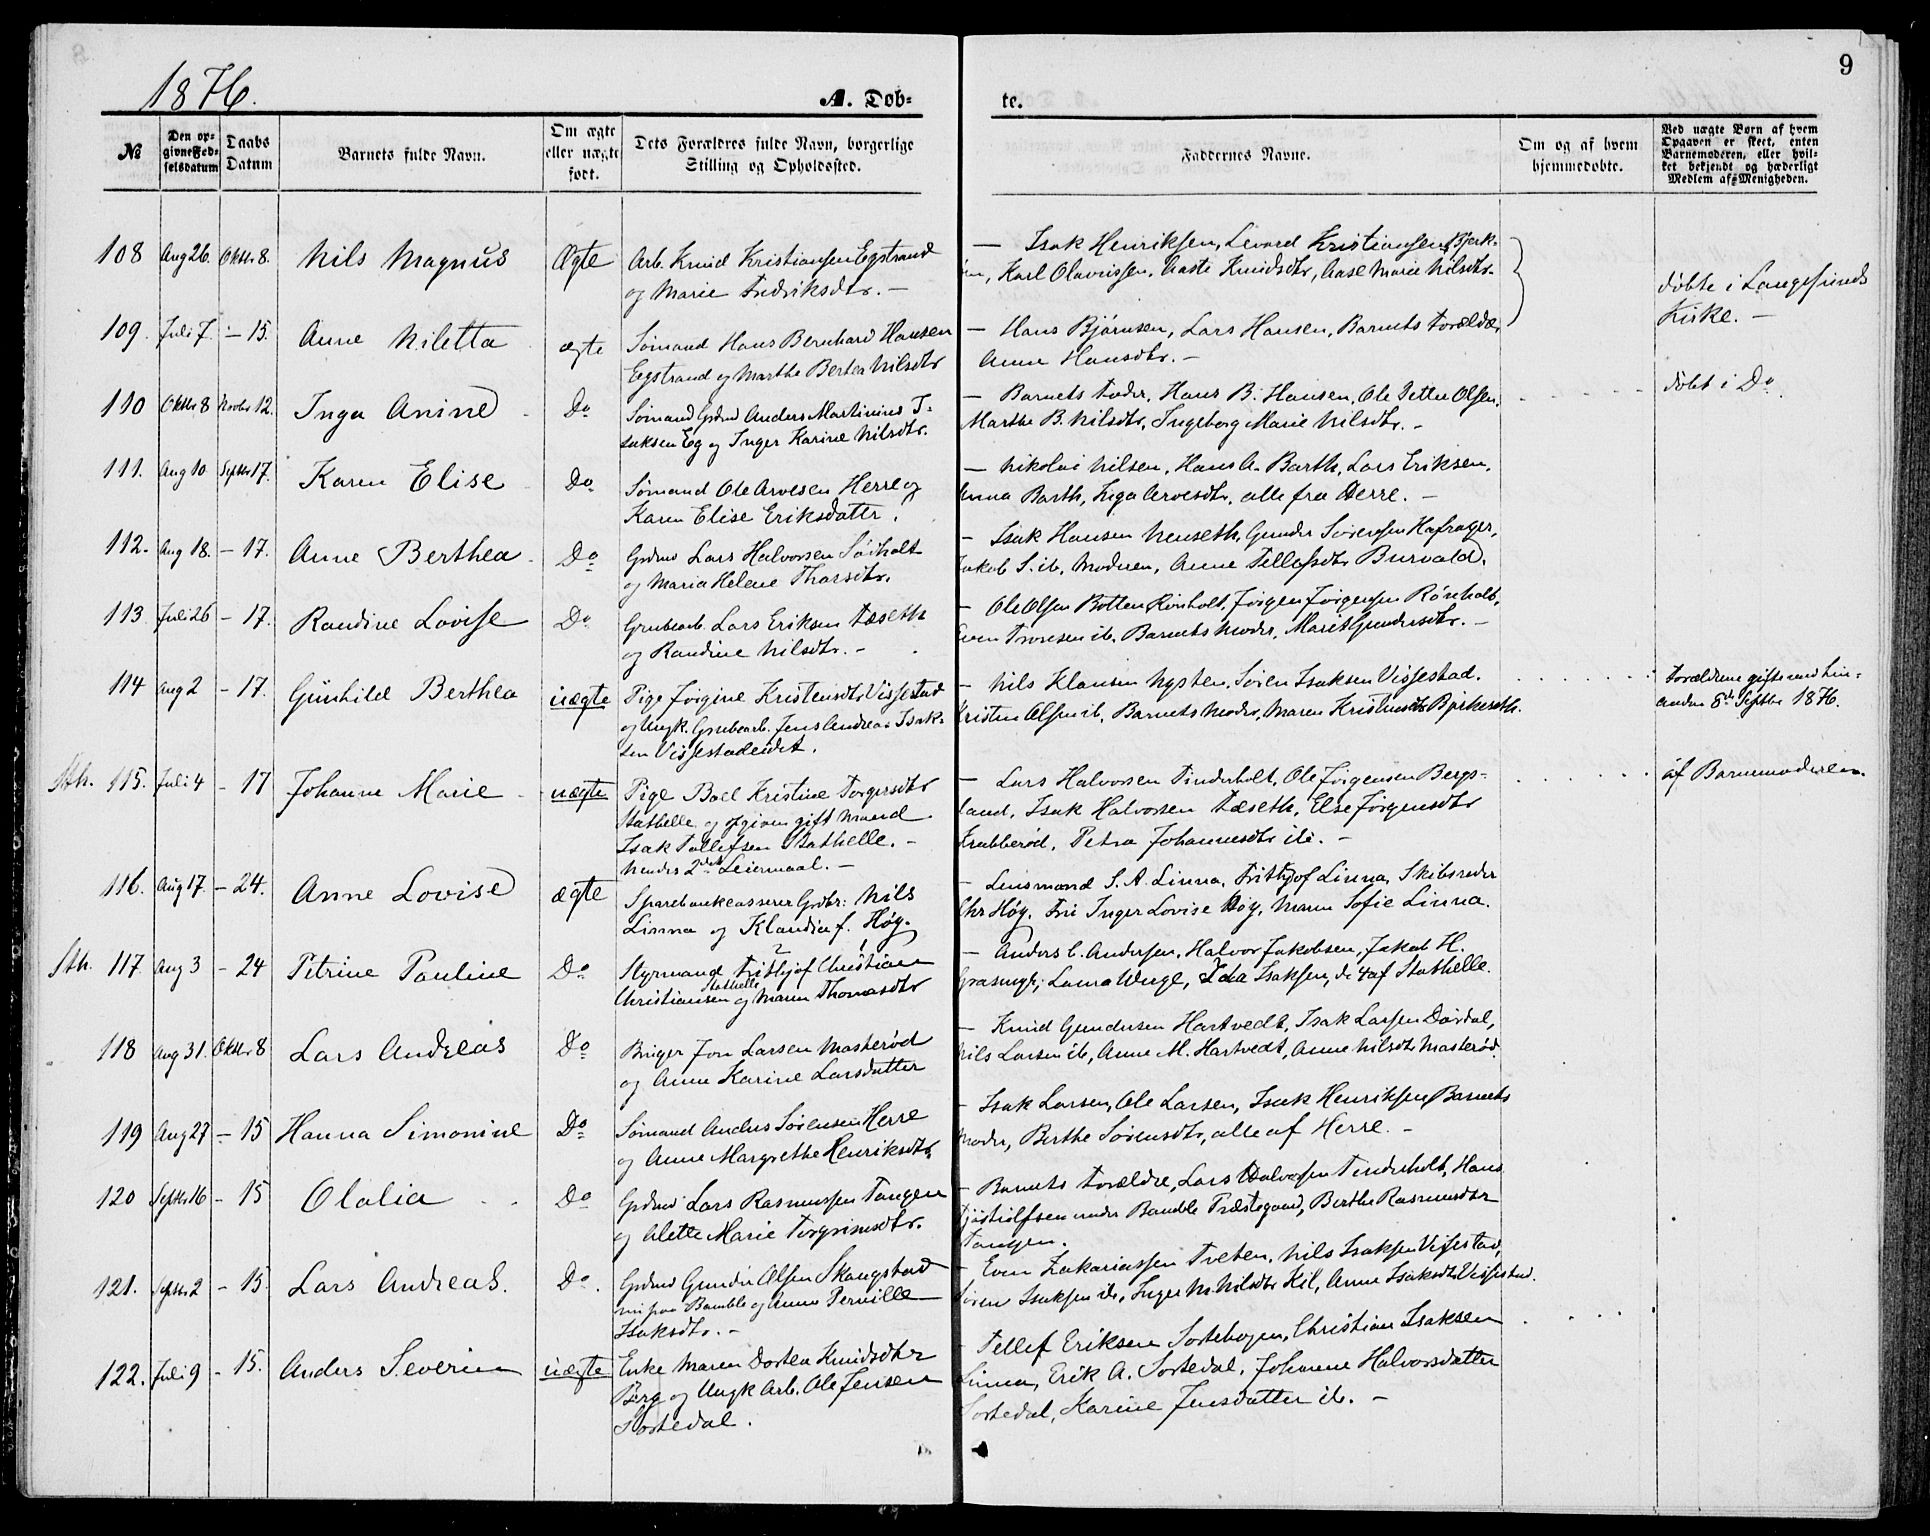 9
1876.
A. Døb-
te.
№
Den op-
givne Fød-
selsdatum
Daabs
Datum
Barnets fulde Navn.
Om ægte
eller uægte
født.
Dets Forældres fulde Navn, borgerlige
Stilling og Opholdssted.
Faddernes Navne.
Om og af hvem
hjemmedøbte.
Ved uægte Børn af hvem
Opgaven er skeet, enten
Barnemoderen, eller hvil-
ket bekjendt og hæderligt
Medlem af Menigheden.
108 Aug 26. Oktbr 8. Nils Magnus Ægte Arb. Knud Kristiansen Egstrand
og Marie Fredriksdtr. —
— Isak Henriksen, Levord Kristiansen, Bjerk-
Karl Olavessen, Aaste Knudsdtr, Aase Marie Nilsdtr.
døbte i Langesunds
Kirke. —
109. Juli 7. — 15. Anne Niletta ægte Sømand Hans Bernhard Hansen
Egstrand og Marthe Bertea Nilsdtr
— Hans Bjørnsen, Lars Hansen, Barnets Forældre,
Anne Hansdtr. —
110 Oktbr 8 Novbr 12. Inga Anine Do Sømand Grdmd Anders Martinius I-
saksen Eg og Inger Karine Nilsdtr.
— Barnets Fader, Hans B. Hansen, Ole Petter Olsen,
Marthe B. Nilsdtr, Ingeborg Marie Nilsdtr. —
døbt i Do
111. Aug 10 Septbr 17. Karen Elise Do Sømand Ole Arvesen Herre og
Karen Elise Eriksdatter.
— Nikolai Nilsen, Hans A. Barth, Lars Eriksen,
Anna Barth, Inga Arvesdtr, alle fra Herre. —
112. Aug 18. — 17. Anne Berthea Do Grdmd Lars Halvorsen Søiholt
og Maria Helene Thorsdtr.
— Isak Hansen Nenseth, Gunder Sørensen Hafrager,
Jakob S. ib, Moderen, Anne Tellefsdtr Burvald.
113 Juli 26 — 17. Randine Lovise Do Grubearb. Lars Eriksen Fæseth
og Randine Nilsdtr. —
— Ole Olsen Botten Rønholt, Jørgen Jørgensen Rønholt,
Even Tovesen ib, Barnets Moder, Marit Gundersdtr. —
114 Aug 2 — 17. Gunhild Berthea uægte Pige Jørgine Kristensdtr Vissestad
og Ungk. Grubearb. Jens Andreas Isak-
sen Vissestadeidet.
— Nils Klausen Nysten, Søren Isaksen Vissestad,
Kristen Olsen ib, Barnets Moder, Maren Kristensdtr Bjerkeseth.
Forældrene gifte med hin-
anden 8de Septbr 1876.
Sth. 115. Juli 4 — 17 Johanne Marie uægte Pige Boel Kristine Torgersdtr
Stathelle og opgiven gift Mand
Isak Tollefsen Stathelle. —
hendes 2det Leiermaal. —
— Lars Halvorsen Tinderholt, Ole Jørgensen Bergs-
land, Isak Halvorsen Fæseth, Else Jørgensdtr
Krabberød, Petra Johannesdtr ib. —
af Barnemoderen.
116. Aug 17. — 24. Anne Lovise ægte Sparebankcasserer Grdbr: Nils
Linna og Klaudia f. Høg.
— Lensmand S. A. Linna, Frithjof Linna, Skibsreder
Chr Høg, Fru Inger Lovise Høg, Maren Sofie Linna.
Sth. 117. Aug 3 — 24 Petrine Pauline Do Styrmand Frithjof Christian
Christiansen Stathelle og Maren Thomasdtr
— Anders C. Andersen, Halvor Jakobsen, Jakob H.
Laura Wenge, Ida Isaksen, de 4 af Stathelle.
118 Aug 31. Oktbr 8 Lars Andreas Do Bruger Jon Larsen Masterød
og Anne Karine Larsdatter
— Knud Gundersen Hartvedt, Isak Larsen Dørdal,
Nils Larsen ib, Anne M. Hartvedt, Anne Nilsdtr Masterød.
119 Aug 27 — 15 Hanna Simonine Do Sømand Anders Sørensen Herre
og Anne Margrethe Henriksdtr.
— Isak Larsen, Ole Larsen, Isak Henriksen, Barnets
Moder, Berthe Sørensdtr, alle af Herre. —
120 Septbr 16 — 15 Olalia Do Grdmd Lars Rasmussen Tangen
og Alette Marie Torgrimsdtr.
— Barnets Forældre, Lars Halvorsen Tinderholt, Hans
Kjøstolfsen under Bamble Præstegaard, Berthe Rasmusdtr
Tangen.
121. Septbr 2 — 15 Lars Andreas. Do. Grdmd Gunder Olsen Skaugstad
nu paa Bamble og Anne Pernille
Isaksdtr. —
— Even Zakariassen Tveten, Nils Isaksen Vissestad,
Søren Isaksen ib, Inger M. Nilsdtr Kil, Anne Isaksdtr Vissestad.
122. Juli 9 — 15. Anders Severin uægte Enke Maren Dortea Knudsdtr
Berg og Ungk Arb. Ole Jensen
Sortedal.
— Tellef Eriksen Sortebogen, Christian Isaksen
Linna, Erik A. Sortedal, Johanne Halvorsdatter
Sortedal, Karine Jensdatter ib. —